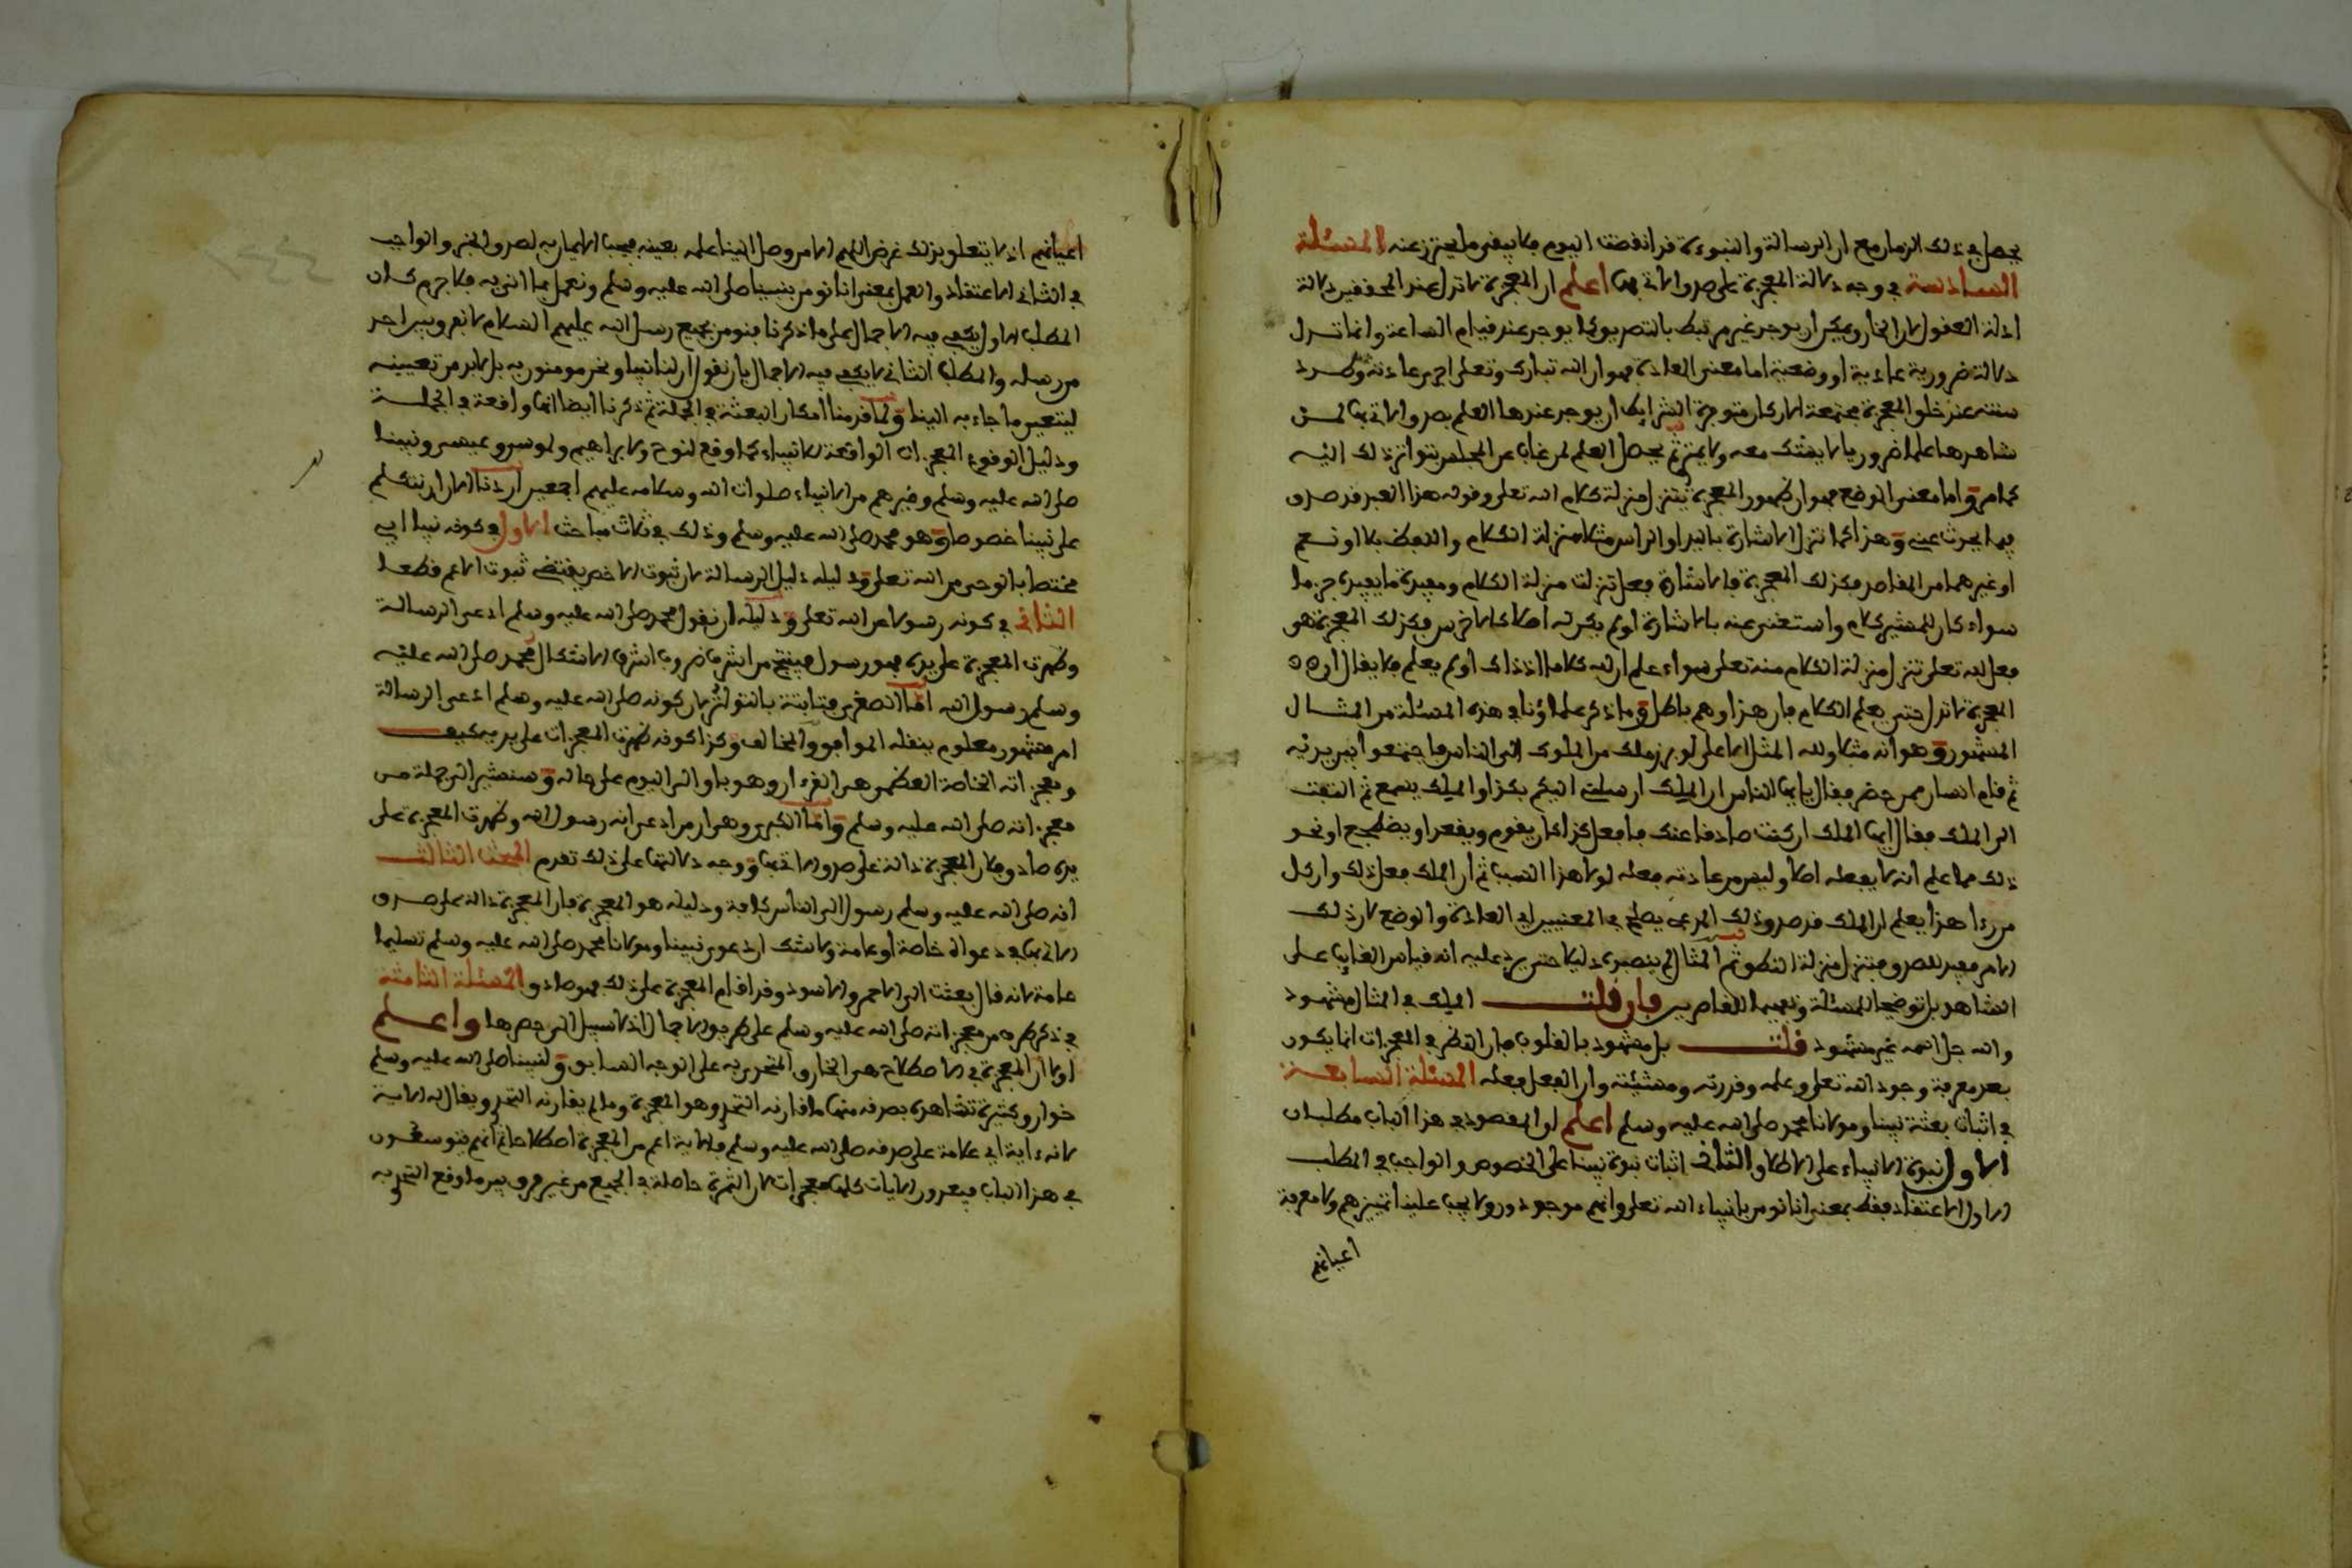 يحصل في ذلك الزمان مع ان الرسالة والنبوءة قد انقضت اليوم فلا يبقى ما يحترز عنه المسئلة
السادسة في وجه دلالة المعجزة على صدق الاتي بها اعلم ان المعجزة لا تدل عند المحققين دلالة
ادلة العقول لان الخارق يمكن ان يوجد غير مرتبط بالتصديق كما يوجد عند قيام الساعة وانما تدل
دلالة ضرورية عادية او وضعية اما معنى العادية فهو ان الله تبارك وتعلى اجرى عادته وطرد
سنته عند خلق المعجزة مجتمعة الاركان متوفرة الشرايط ان يوجد عندها العلم بصدق الاتي بها لمن
شاهدها علما ضروريا لا يشك معه ولا يمتري ثم يحصل العلم لمن غاب عن المجلس بتواتر ذلك اليه
كما مر واما معنى الوضع فهو ان ظهور المعجزة يتنزل منزلة كلام الله تعلى وقوله هذا العبد قد صدق
فيما يحدث عني وهذا كما تتنزل الاشارة باليد او الراس مثلا منزلة الكلام واللفظ بلا او نعم
او غيرهما من المقاصد فكذلك المعجزة فالاشارة فعل تنزلت منزلة الكلام ومفيدة ما يفيده جزما
سواء كان للمشير كلام واستغنى عنه بالاشارة او لم يكن له اصلا كالاخرس فكذلك المعجزة هو
فعل لله تعلى تنزل منزلة الكلام منه تعلى سواء علم ان له كلاما اذ ذاك او لم يعلم فلا يقال ان
المعجزة لا تدل حتى يعلم الكلام فان هذا وهم باطل وما ذكر علماؤنا في هذه المسئلة من المثال
المشهور وهو انه مثلا ولله المثل الاعلى لو برز ملك من الملوك الى الناس فاجتمعوا بين يديه
ثم قام انسان ممن حضر فقال يايها الناس ان الملك ارسلني اليكم بكذا والملك يسمع ثم التفت
الى الملك فقال ايها الملك ان كنت صادقا عنك فافعل كذا كان يقوم ويقعد او يضطجع او نحو
ذلك مما علم انه لا يفعله اصلا وليس من عادته فعله لولا هذا السبب ثم ان الملك فعل ذلك وان كل
من رءا هذا يعلم ان الملك قد صدق ذلك المدعي يصلح في المعنيين اي العادة والوضع لان ذلك
الامر مفيد للصدق ومتنزل منزلة النطق ثم المثال لم ينصب دليلا حتى يرد عليه انه قياس الغايب على
الشاهد بل توضيحا للمسئلة وتفهيما للقاصرين فان قلت الملك في المثال مشهود
والله جل اسمه غير مشهود قلت بل مشهود بالقلوب فان النظر في المعجزات انما يكون
بعد معرفة وجود الله تعلى وعلمه وقدرته ومشيئته وان الفعل فعله المسئلة السابعة
في اثبات بعثة نبينا ومولانا محمد صلى الله عليه وسلم اعلم ان المقصود في هذا الباب مطلبان
الاول نبوة الانبياء على الاطلاق والثاني اثبات نبوة نبينا على الخصوص والواجب في المطلب
الاول الاعتقاد فقط بمعنى انا نومن بانبياء الله تعلى وانهم موجودون ولا يجب علينا تمييزهم ولا معرفة
اعيانهم
اعيانهم اذ لا يتعلق بذلك غرض اللهم الا من وصل الينا علمه بعينه فيجب الايمان به لصدق الخبر والواجب
في الثاني الاعتقاد والعمل بمعنى انا نومن بنبينا صلى الله عليه وسلم ونعمل بما اتى به فلا جرم كان
المطلب الاول يكفي فيه الاجمال على ما ذكرنا فنومن بجميع رسل الله عليهم السلام لا نفرق بين احد
من رسله والمطلب الثاني لا يكفي فيه الاجمال بان نقول ان لنا نبيا ونحن مومنون به بل لا بد من تعيينه
ليتعين ما جاء به الينا ولما قدمنا امكان البعثة في الجملة ثم ذكرنا ايضا انها واقعة في الجملة
ودليل الوقوع المعجزات الواقعة للانبياء كما وقع لنوح ولابراهيم ولموسى وعيسى ونبينا
صلى الله عليه وسلم وغيرهم من الانبياء صلوات الله وسلامه عليهم اجمعين اردنا الان ان نتكلم
على نبينا خصوصا وهو محمد صلى الله عليه وسلم وذلك في ثلاث مباحث الاول في كونه نبيا اي
مختصا بالوحي من الله تعلى ودليله دليل الرسالة لان ثبوت الاخص يقتضي ثبوت الاعم قطعا
الثاني في كونه رسولا من الله تعلى ودليله ان نقول محمد صلى الله عليه وسلم ادعى الرسالة
وظهرت المعجزة على يده فهو رسول فينتج من اشرف ضروب اشرف الاشكال محمد صلى الله عليه
وسلم رسول الله اما الصغرى فثابتة بالتواتر لان كونه صلى الله عليه وسلم ادعى الرسالة
امر مشهور معلوم ينقله الموافق والمخالف وكذا كونه ظهرت المعجزات على يديه كيف
ومعجزاته الخاصة العظمى هي القرءان وهو باق الى اليوم على حاله وسنشير الى جملة من
معجزاته صلى الله عليه وسلم واما الكبرى وهي ان من ادعى انه رسول الله وظهرت المعجزة على
يده صادق فلان المعجزة دالة على صدق الاتي بها ووجه دلالتها على ذلك تقدم المبحث الثالث
انه صلى الله عليه وسلم رسول الى الناس كافة ودليله هو المعجزة فان المعجزة دالة على صدق
الاتي بها في دعواه خاصة او عامة ولا شك ان دعوى نبينا ومولانا محمد صلى الله عليه وسلم تسليما
عامة لانه قال بعثت الى الاحمر والاسود وقد اقام المعجزة على ذلك فهو صادق المسئلة الثامنة
في ذكر طرف من معجزاته صلى الله عليه وسلم على طريق الاجمال اذ لا سبيل الى حصرها واعلم
اولا ان المعجزة في الاصطلاح هي الخارق المتحدى به على الوجه السابق ولنبينا صلى الله عليه وسلم
خوارق كثيرة تشاهد بصدقه منها ما قارنه التحدي وهو المعجزة وما لم يقارنه التحدي ويقال له الاية
لانه ءاية اي علامة على صدقه صلى الله عليه وسلم فالاية اعم من المعجزة اصطلاحا ثم انهم يتوسعون
في هذا الباب فيعدون الايات كلها معجزات لان الثمرة حاصلة في الجميع من غير فرق بين ما وقع التحدي به
و